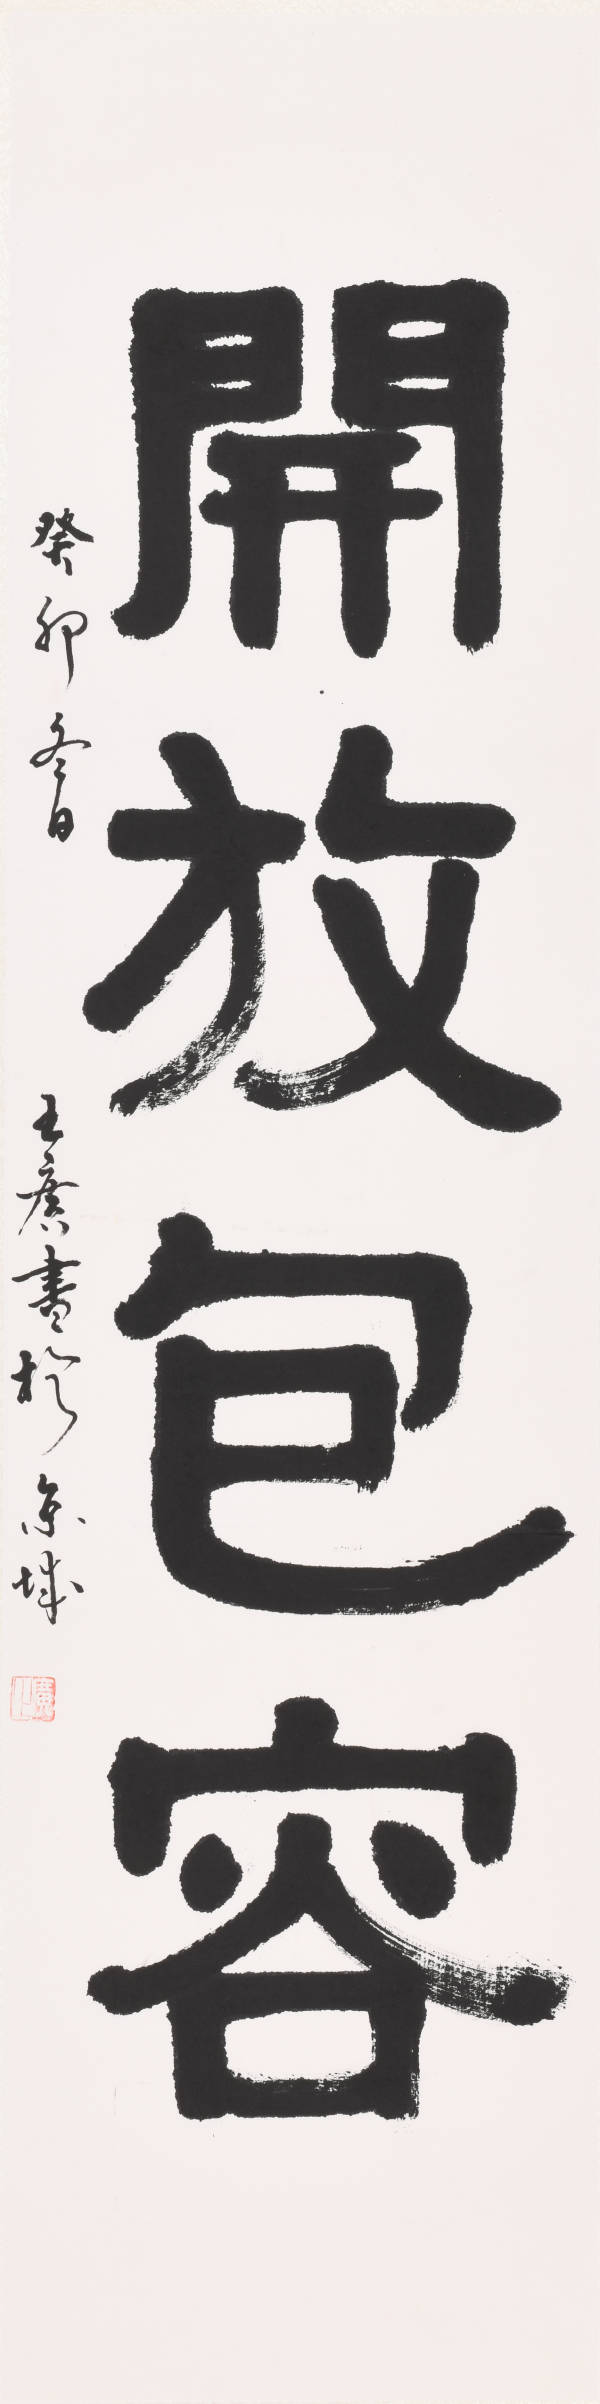 開放包容
癸卯冬日
王廣書於京城
廣